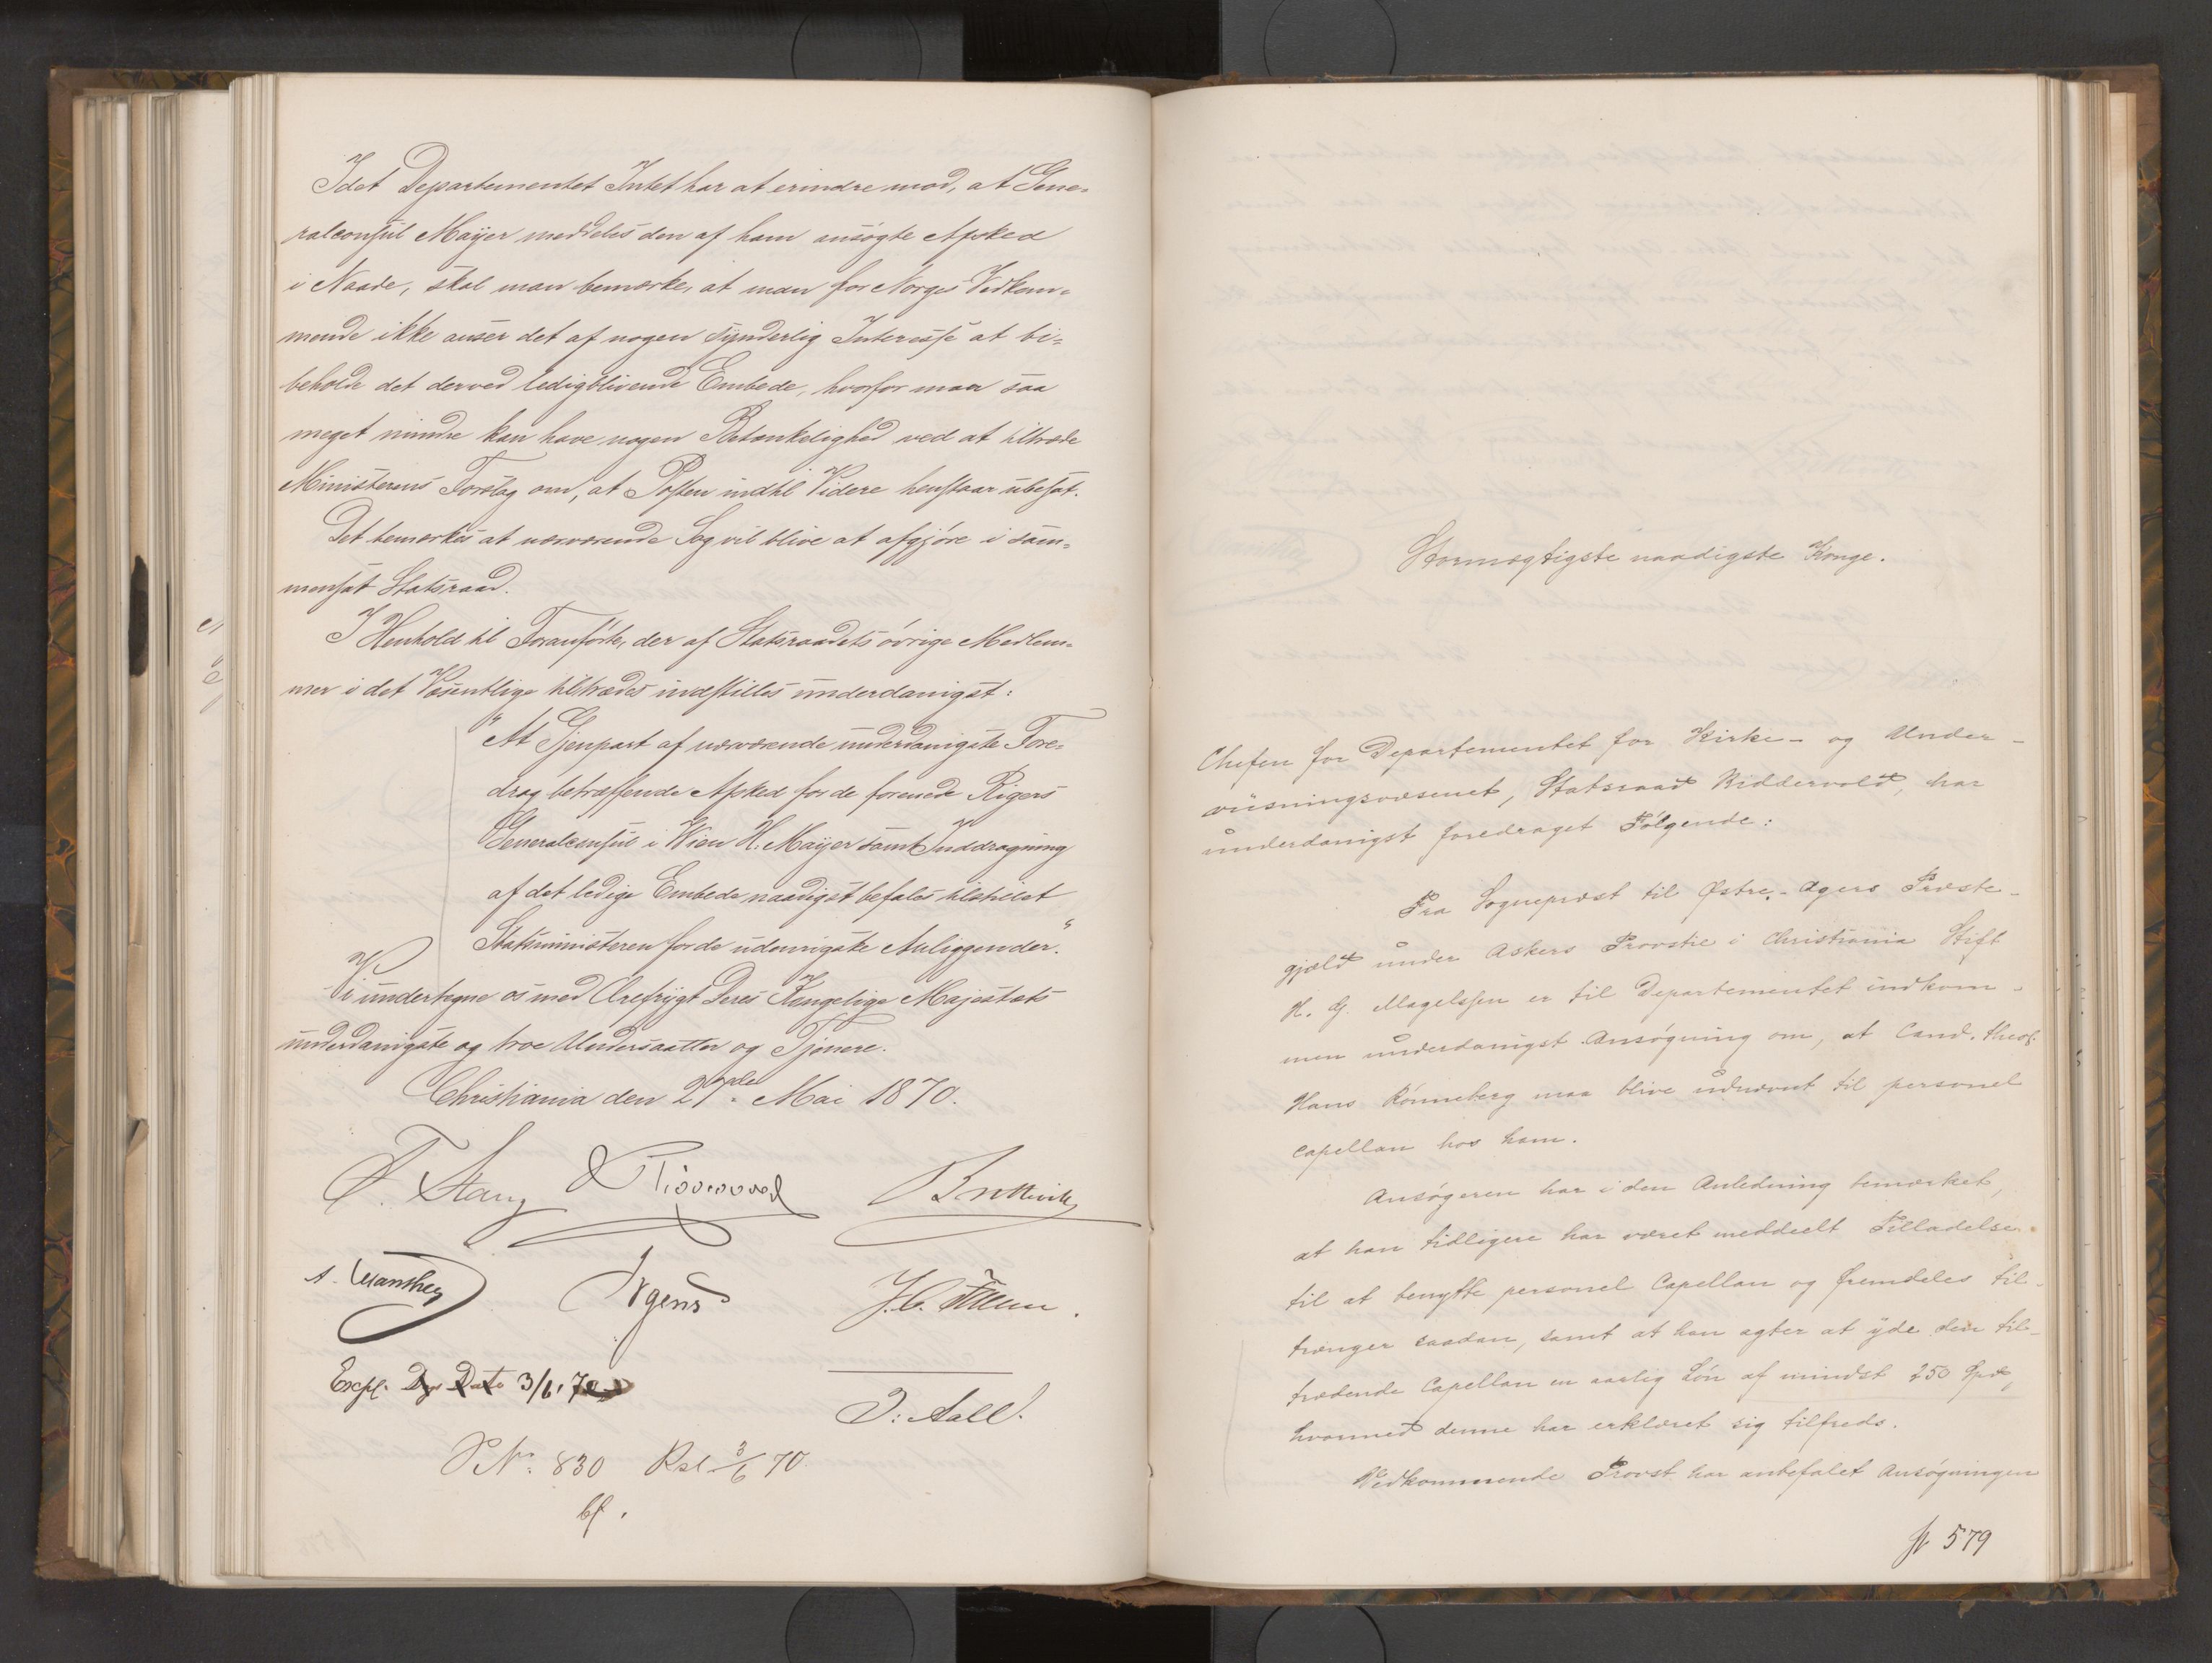 Idet Departementet Intet har at erindre mod, at Gene-
ralconsul Mayer meddeles den af ham ansøgte Afsked
i Naade, skal man bemærke, at man for Norges Vedkom-
mende ikke anser det af nogen synderlig Interesse at bi-
beholde det derved ledigblivende Embede, hvorfor man saa
meget mindre kan have nogen Betænkelighed ved at tiltræde
Ministerens Forslag om, at Posten indtil Videre henstaar ubesat.
Det bemærkes at nærværende Sag vil blive at afgjøre i sam-
mensat Statsraad.
I Henhold til Foranførte, der af Statsraadets øvrige Medlem-
mer i det Væsentlige tiltrædes indstilles underdanigst:
"At Gjenpart af nærværende underdanigste Fore-
drag betræffende Afsked for de forenede Rigers
Generalconsul i Wien H. Mayer samt Inddragning
af det ledige Embede naadigst befales tilstillet
Statsministeren for de udenrigste Anliggender."
Vi undertegne os med Ærefrygt Deres Kongelige Majestæts
underdanigste og troe Undersaatter og Tjenere.
Christiania den 27de Mai 1870.
F. Stang Riddervold Bretteville
A. Manthey Irgens J.C. Falsen.
Expl. 3/6. 70
J: Aall.
P No. 830 Rsl 3/6 70
bf.
Stormægtigste naadigste Konge.
Chefen for Departementet for Kirke- og Under-
viisningsvæsenet, Statsraad Riddervold, har
underdanigst foredraget Følgende:
Fra Sognepræst til Østre-Agers Præste-
gjæld under Askers Provstie i Christiania Stift
H. G. Magelssen er til Departementet indkom-
men underdanigst Ansøgning om, at Cand. theol.
Hans Rønneberg maa blive udnævnt til personel
Capellan hos ham.
Ansøgeren har i den Anledning bemærket,
at han tidligere har været meddeelt Tilladelse
til at benytte personel Capellan og fremdeles til-
trænger saadan, samt at han agter at yde den til-
trædende Capellan en aarlig Løn af mindst 250 Spd,
hvormed denne har erklæret sig tilfreds.
Vedkommende Provst har anbefalet Ansøgningen
579